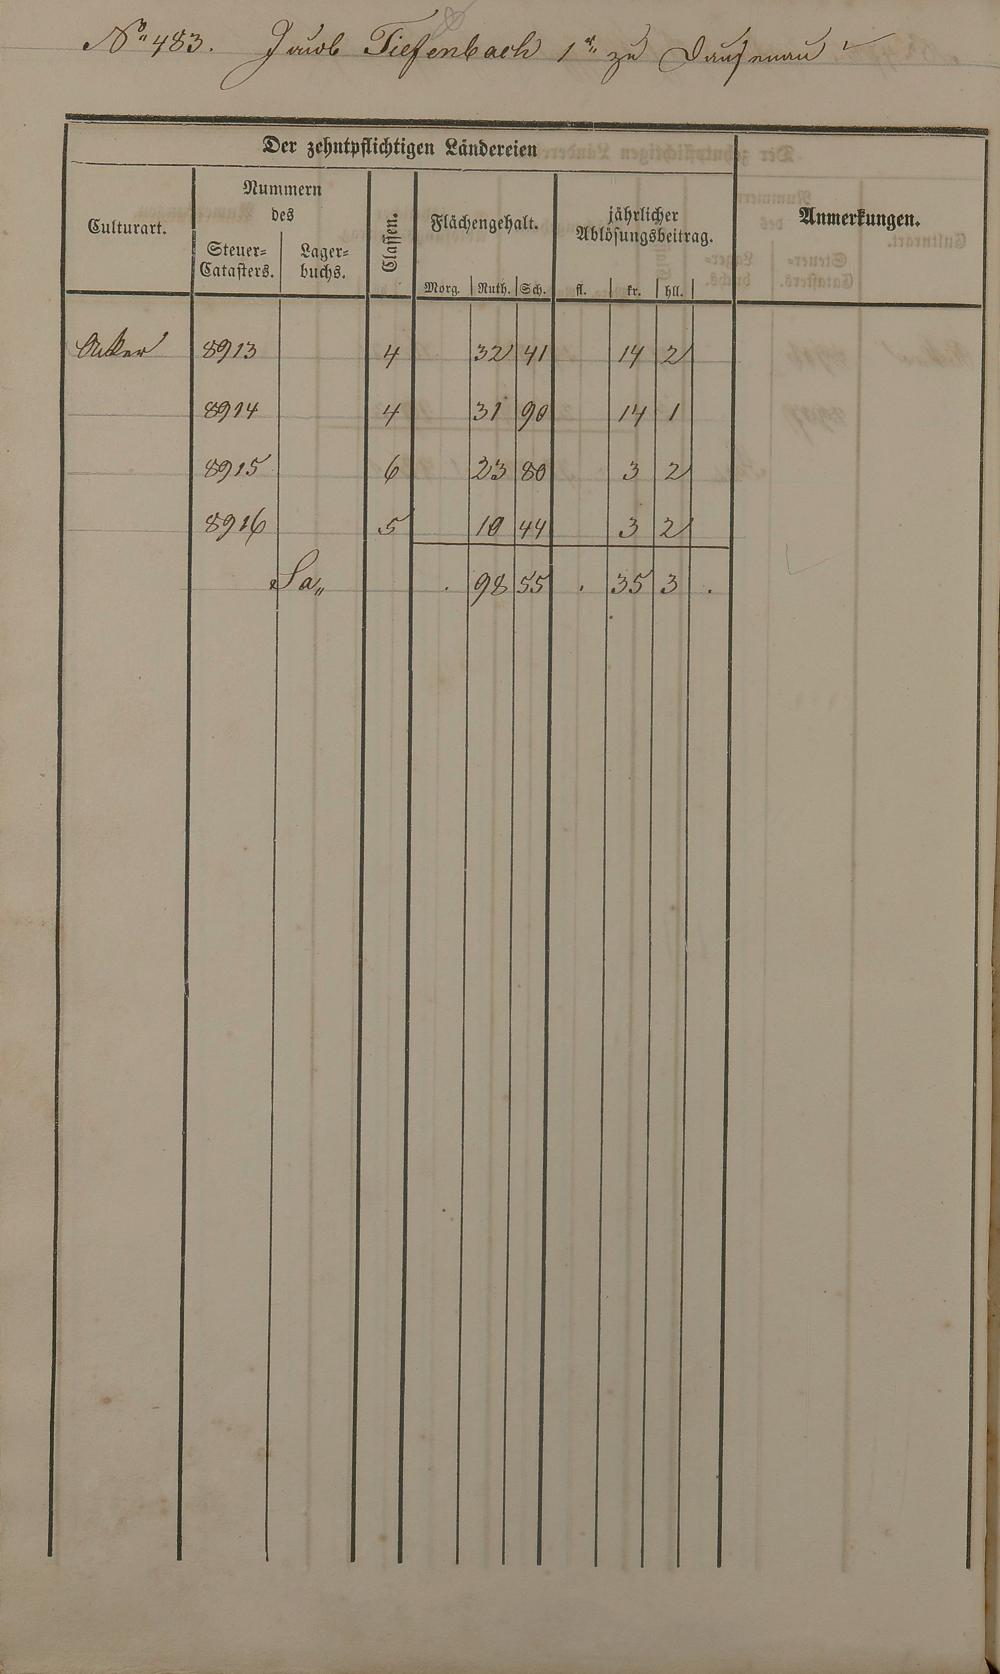 No. 483. Jacob Tiefenbach 1r. zu Dausenau
Der zehntpflichtigen Ländereien
Culturart.
Nummern
des
Steuer-
Catasters.
Lager-
buchs.
Classen.
Flächengehalt.
Morg. Ruth. Sch.
jährlicher
Ablösungsbeitrag.
fl. kr. hll.
Anmerkungen.
Acker 8913 4 32 41 14 2
8914 4 31 90 14 1
8915 6 23 80 3 2
8916 5 10 44 3 2
Sa„ . 98 55 . 35 3 .